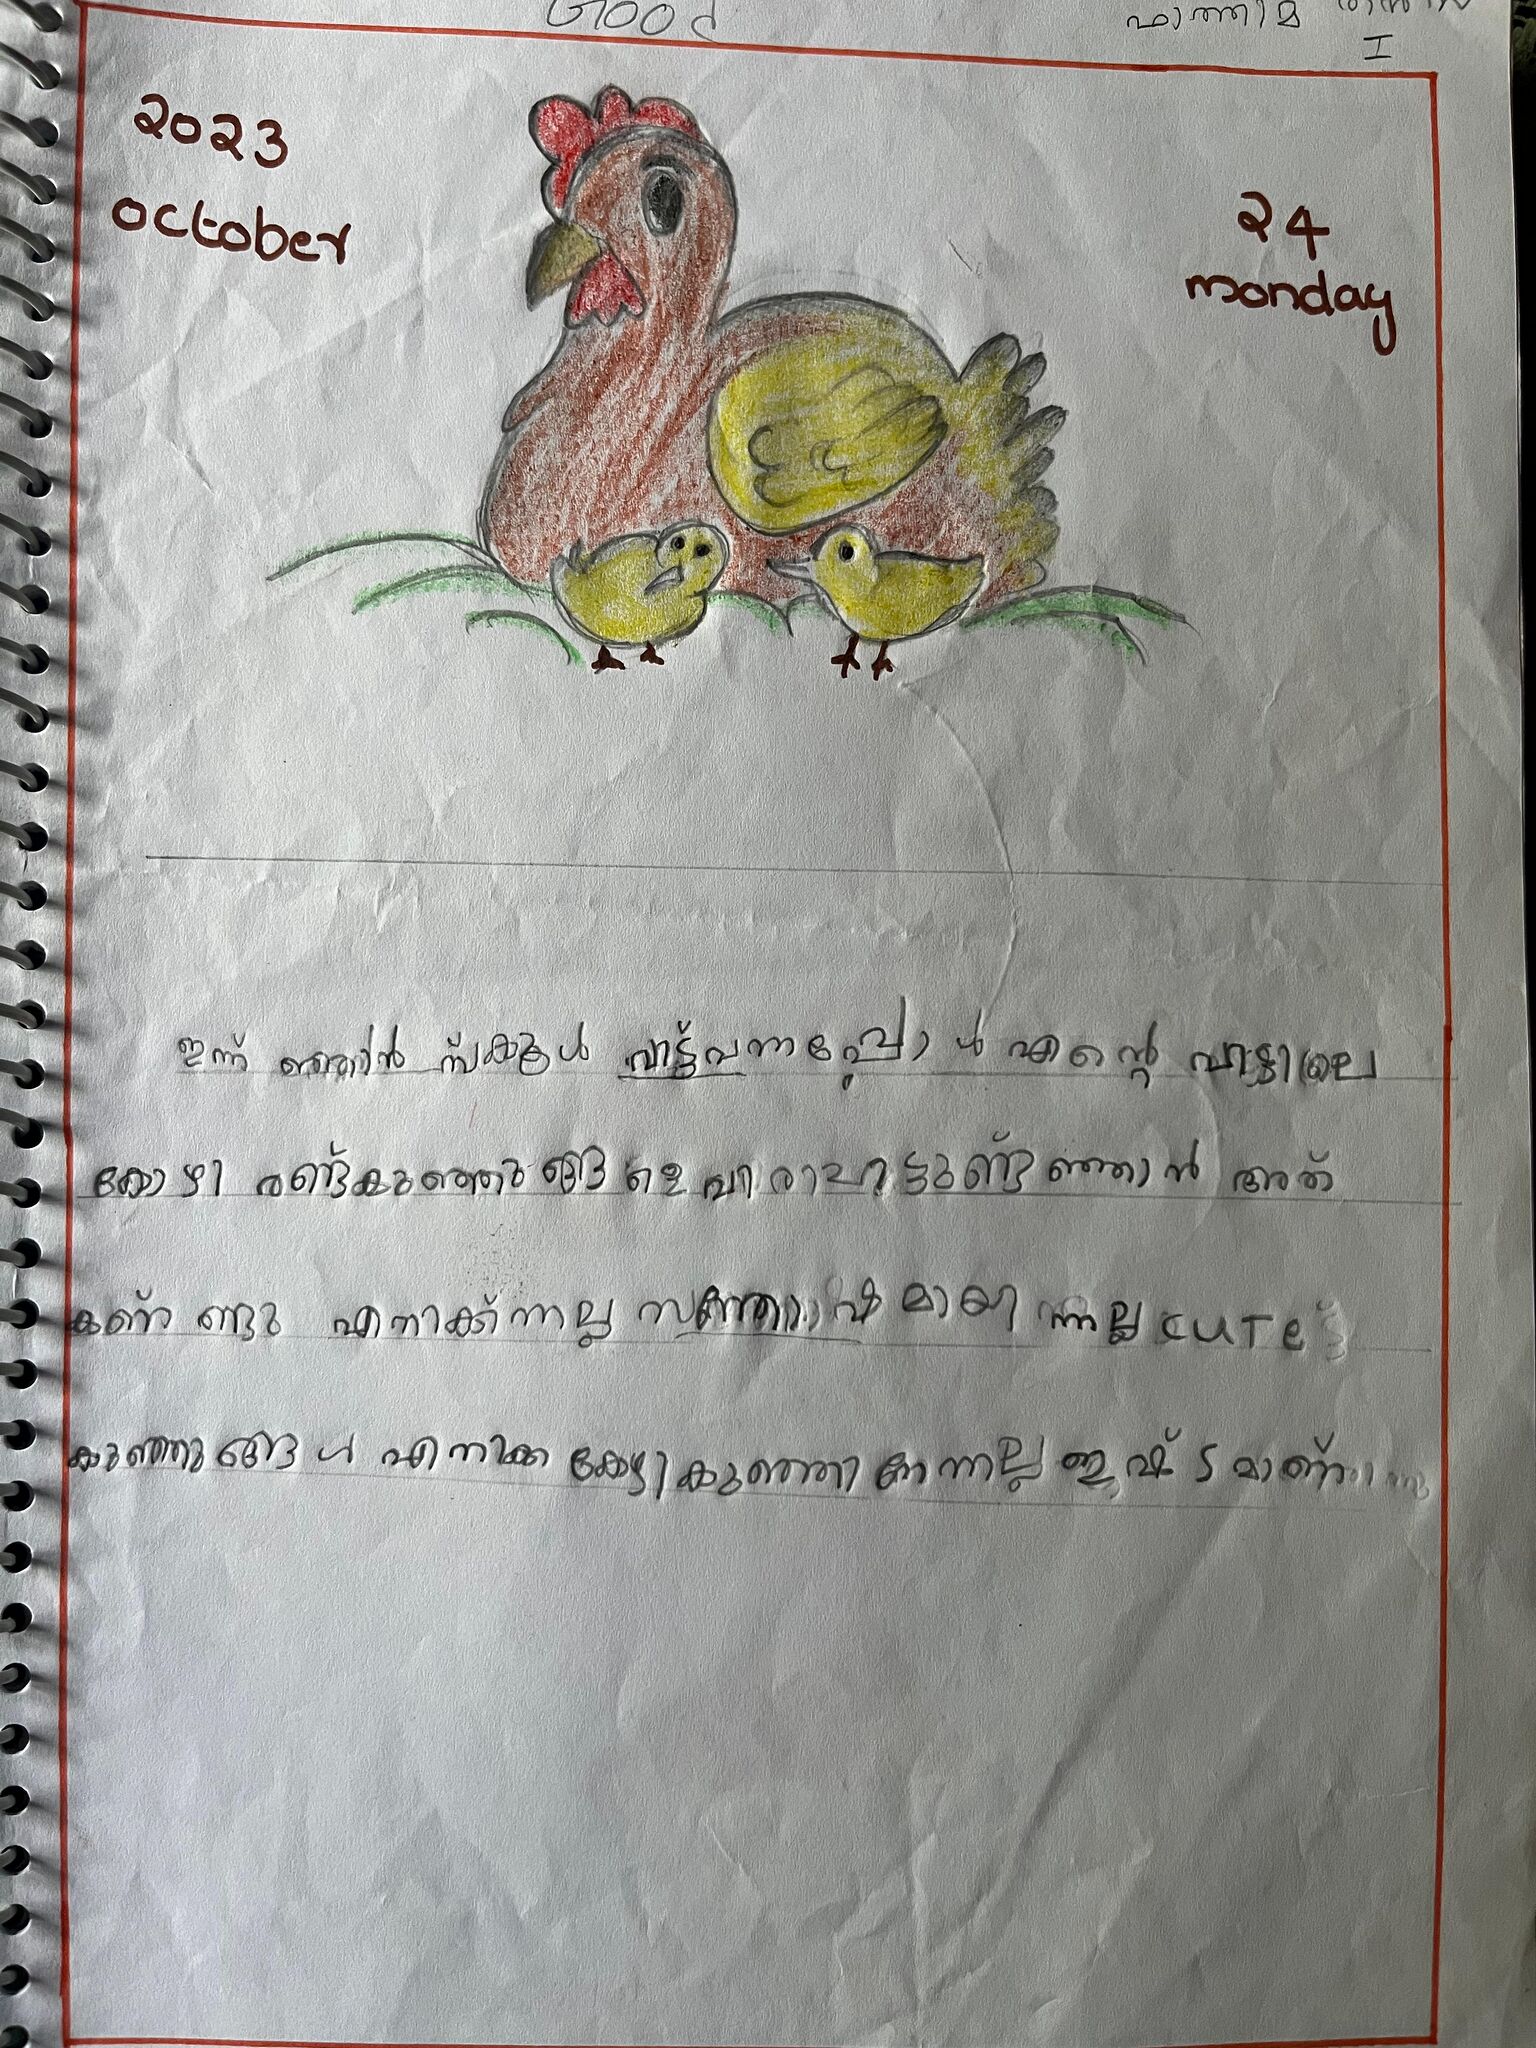 Good
ഫാത്തിമ
I
2023
october
24
monday
ഇന്ന് ഞാൻ സ്കൂൾ വിട്ട്വന്നപ്പോൾ എന്റെ വീട്ടിലെ
കോഴി രണ്ട്കുഞ്ഞുങ്ങളെ ഞാൻ അത്
കണ്ണ്ടു എനിക്ക്ന്നല്ല സന്തോഷമായി ന്നല്ല CUTE
കുഞ്ഞുങ്ങൾ എനിക്ക കോഴികുഞ്ഞിനേന്നല്ല ഇഷ്ടമാണ്